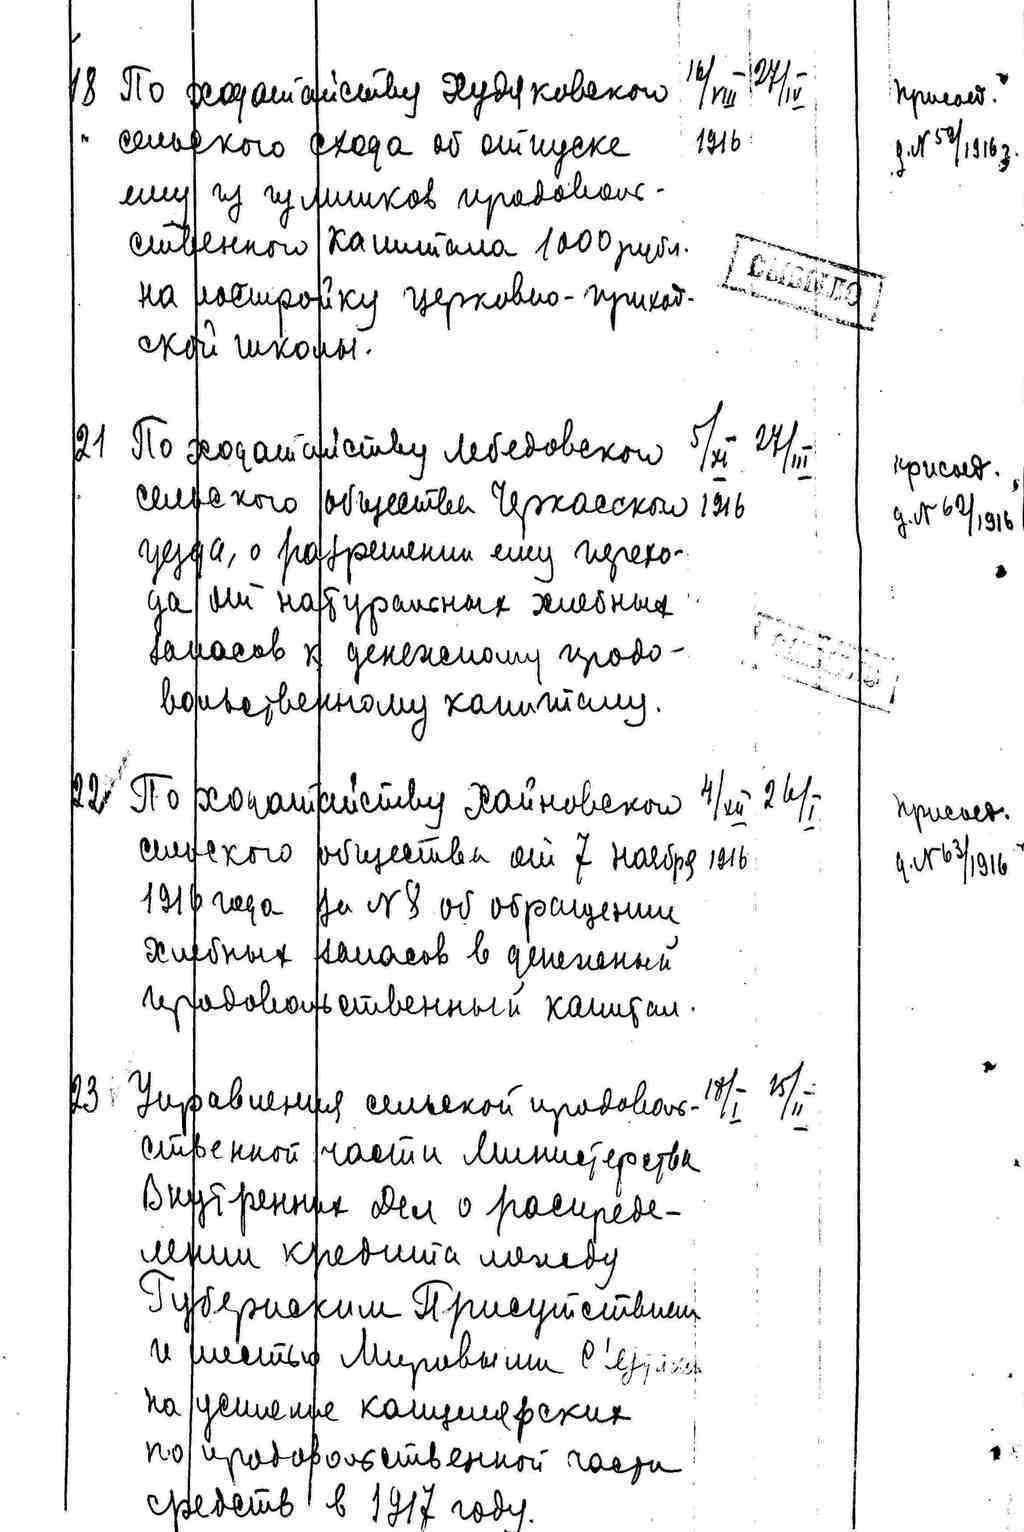 18 По ходатайству Худяковского 16/VIII 27/IV присоед.
" сельского схода об отпуске 1916 д. N 59/1916 г.
ему из излишков продоволь-
ственного капитала 1000 рубл.
на постройку церковно-приход-
ской школы.
ВЫБЫЛО
21 По ходатайству Лебедовского 5/XI 27/III присоед.
сельского общества Черкасского 1916 д. N 62/1916
уезда, о разрешении ему перехо-
да от натуральных хлебных
запасов к денежному продо-
вольственному капиталу.
22 По ходатайству Хайновского 4/XII 26/I присоед.
сельского общества от 7 ноября 1916 д. N 63/1916
1916 года за N 8 об обращении
хлебных запасов в денежный
продовольственный капитал.
23 Управления сельской продоволь- 18/I 15/II
ственной части Министерства
Внутренних Дел о распреде-
лении кредита между
Губернским Присутствием
и шестью Мировыми С'ездами
на усиление канцелярских
по продовольственной части
средств в 1917 году.